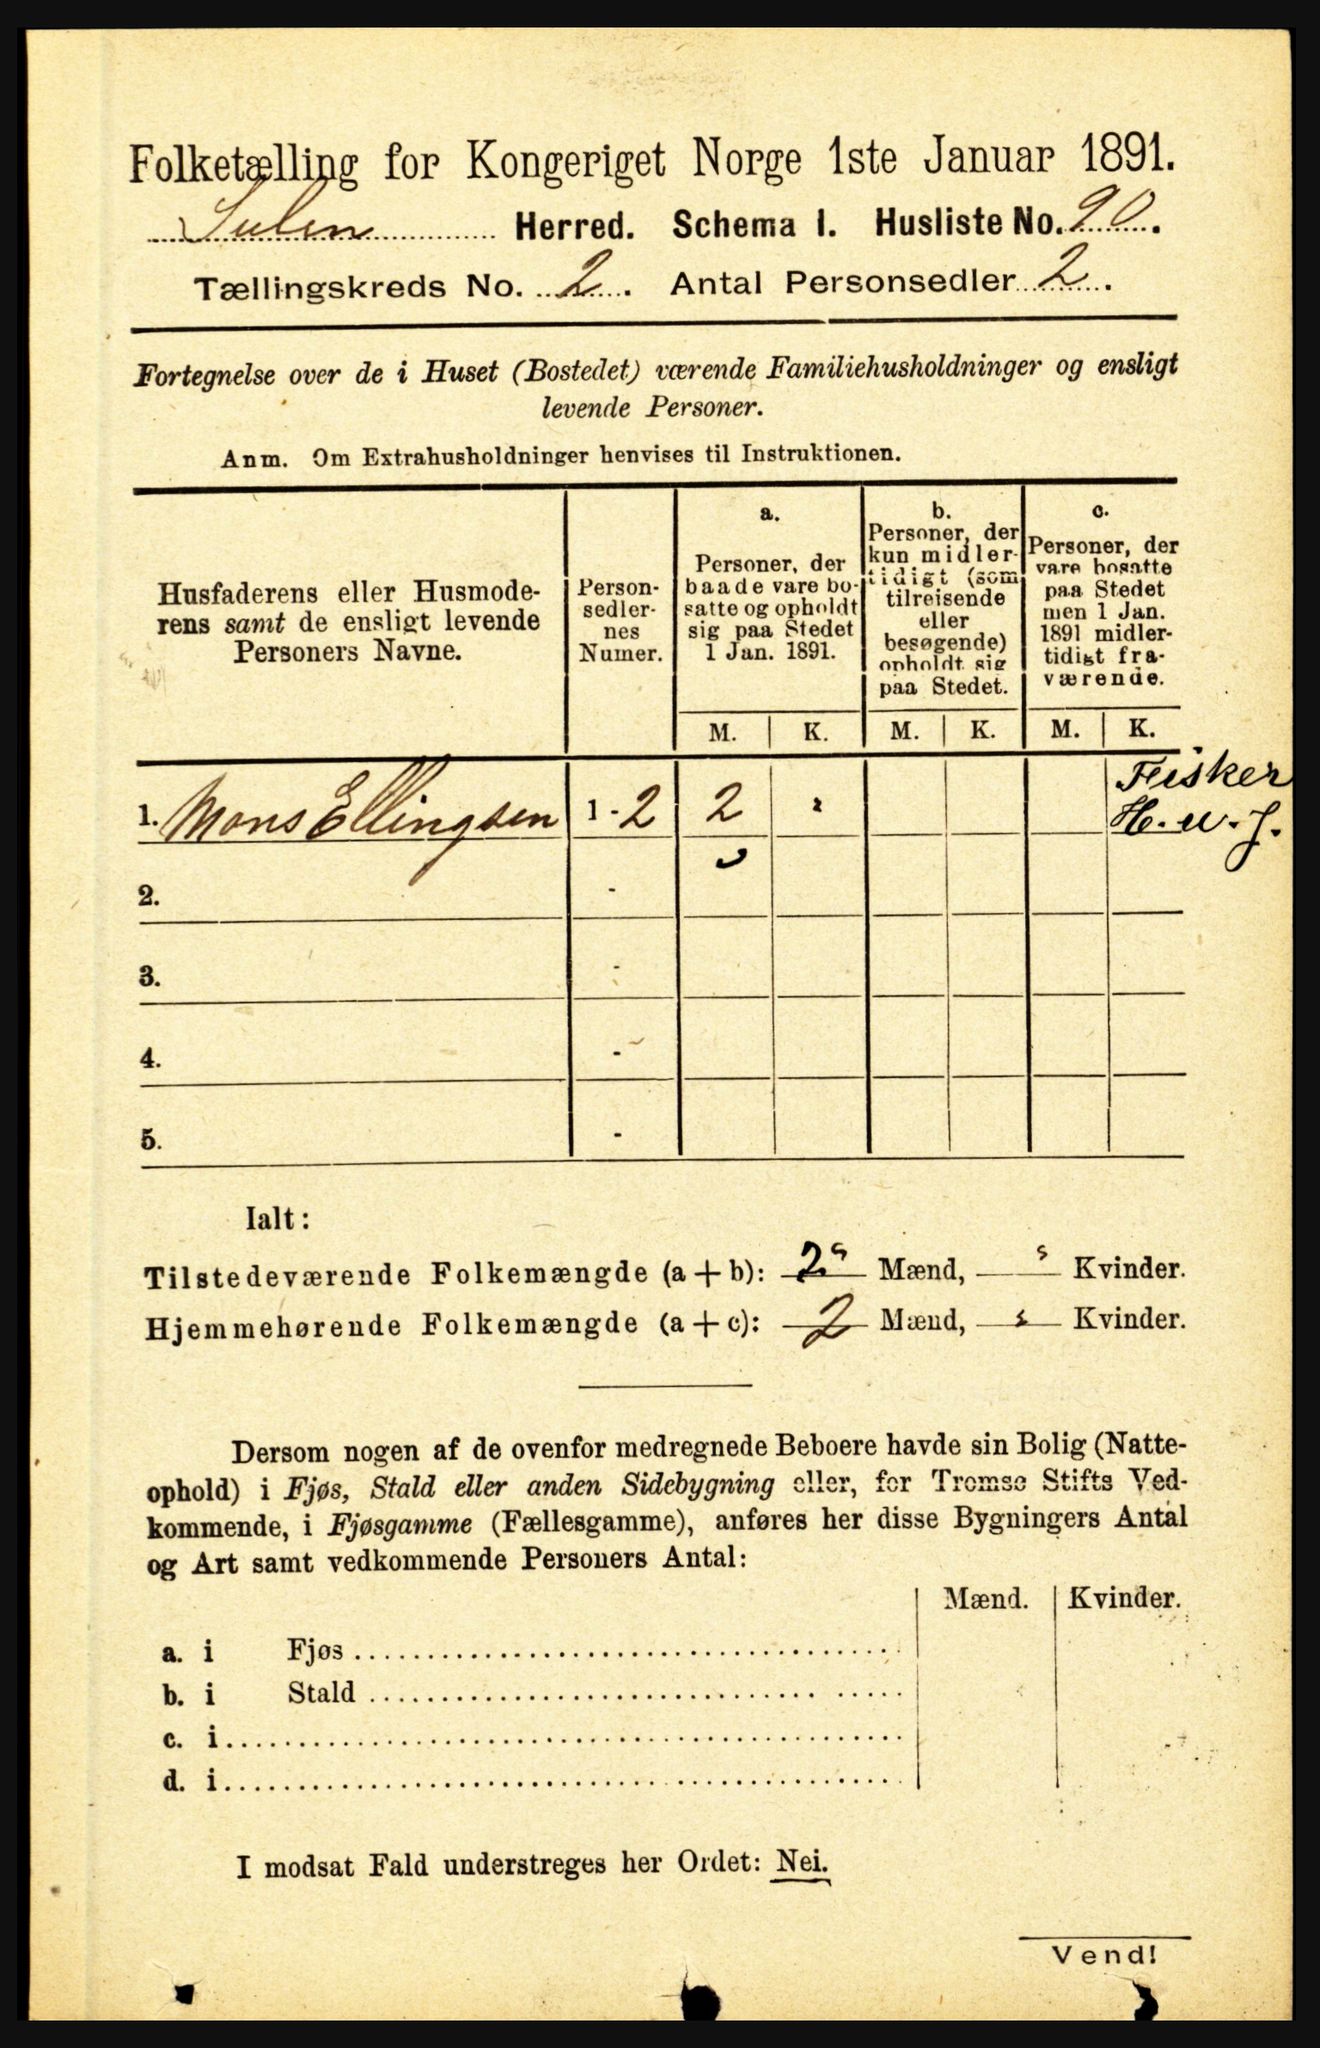 Folketælling for Kongeriget Norge 1ste Januar 1891.
Sulen Herred. Schema I. Husliste No. 90.
Tællingskreds No. 2. Antal Personsedler 2.
Fortegnelse over de i Huset (Bostedet) værende Familiehusholdninger og ensligt
levende Personer.
Anm. Om Extrahusholdninger henvises til Instruktionen.
Husfaderens eller Husmode-
rens samt de ensligt levende
Personers Navne.
Person-
sedler-
nes
Numer.
a.
Personer, der
baade vare bo-
satte og opholdt
sig paa Stedet
1 Jan. 1891.
b.
Personer, der
kun midler-
tidigt (som
tilreisende
eller
besøgende)
opholdt sig
paa Stedet.
c.
Personer, der
vare bosatte
paa Stedet
men 1 Jan.
1891 midler-
tidigt fra-
værende.
M. K. M. K. M. K.
1. Mons Ellingsen 1 - 2 2 Fisker
H. u. J.
2. -
3. -
4. -
5. -
Ialt:
Tilstedeværende Folkemængde (a + b): 2 Mænd, Kvinder.
Hjemmehørende Folkemængde (a + c): 2 Mænd, Kvinder.
Dersom nogen af de ovenfor medregnede Beboere havde sin Bolig (Natte-
ophold) i Fjøs, Stald eller anden Sidebygning eller, for Tromsø Stifts Ved-
kommende, i Fjøsgamme (Fællesgamme), anføres her disse Bygningers Antal
og Art samt vedkommende Personers Antal:
Mænd. Kvinder.
a. i Fjøs
b. i Stald
c. i
d. i
I modsat Fald understreges her Ordet: Nei.
Vend!